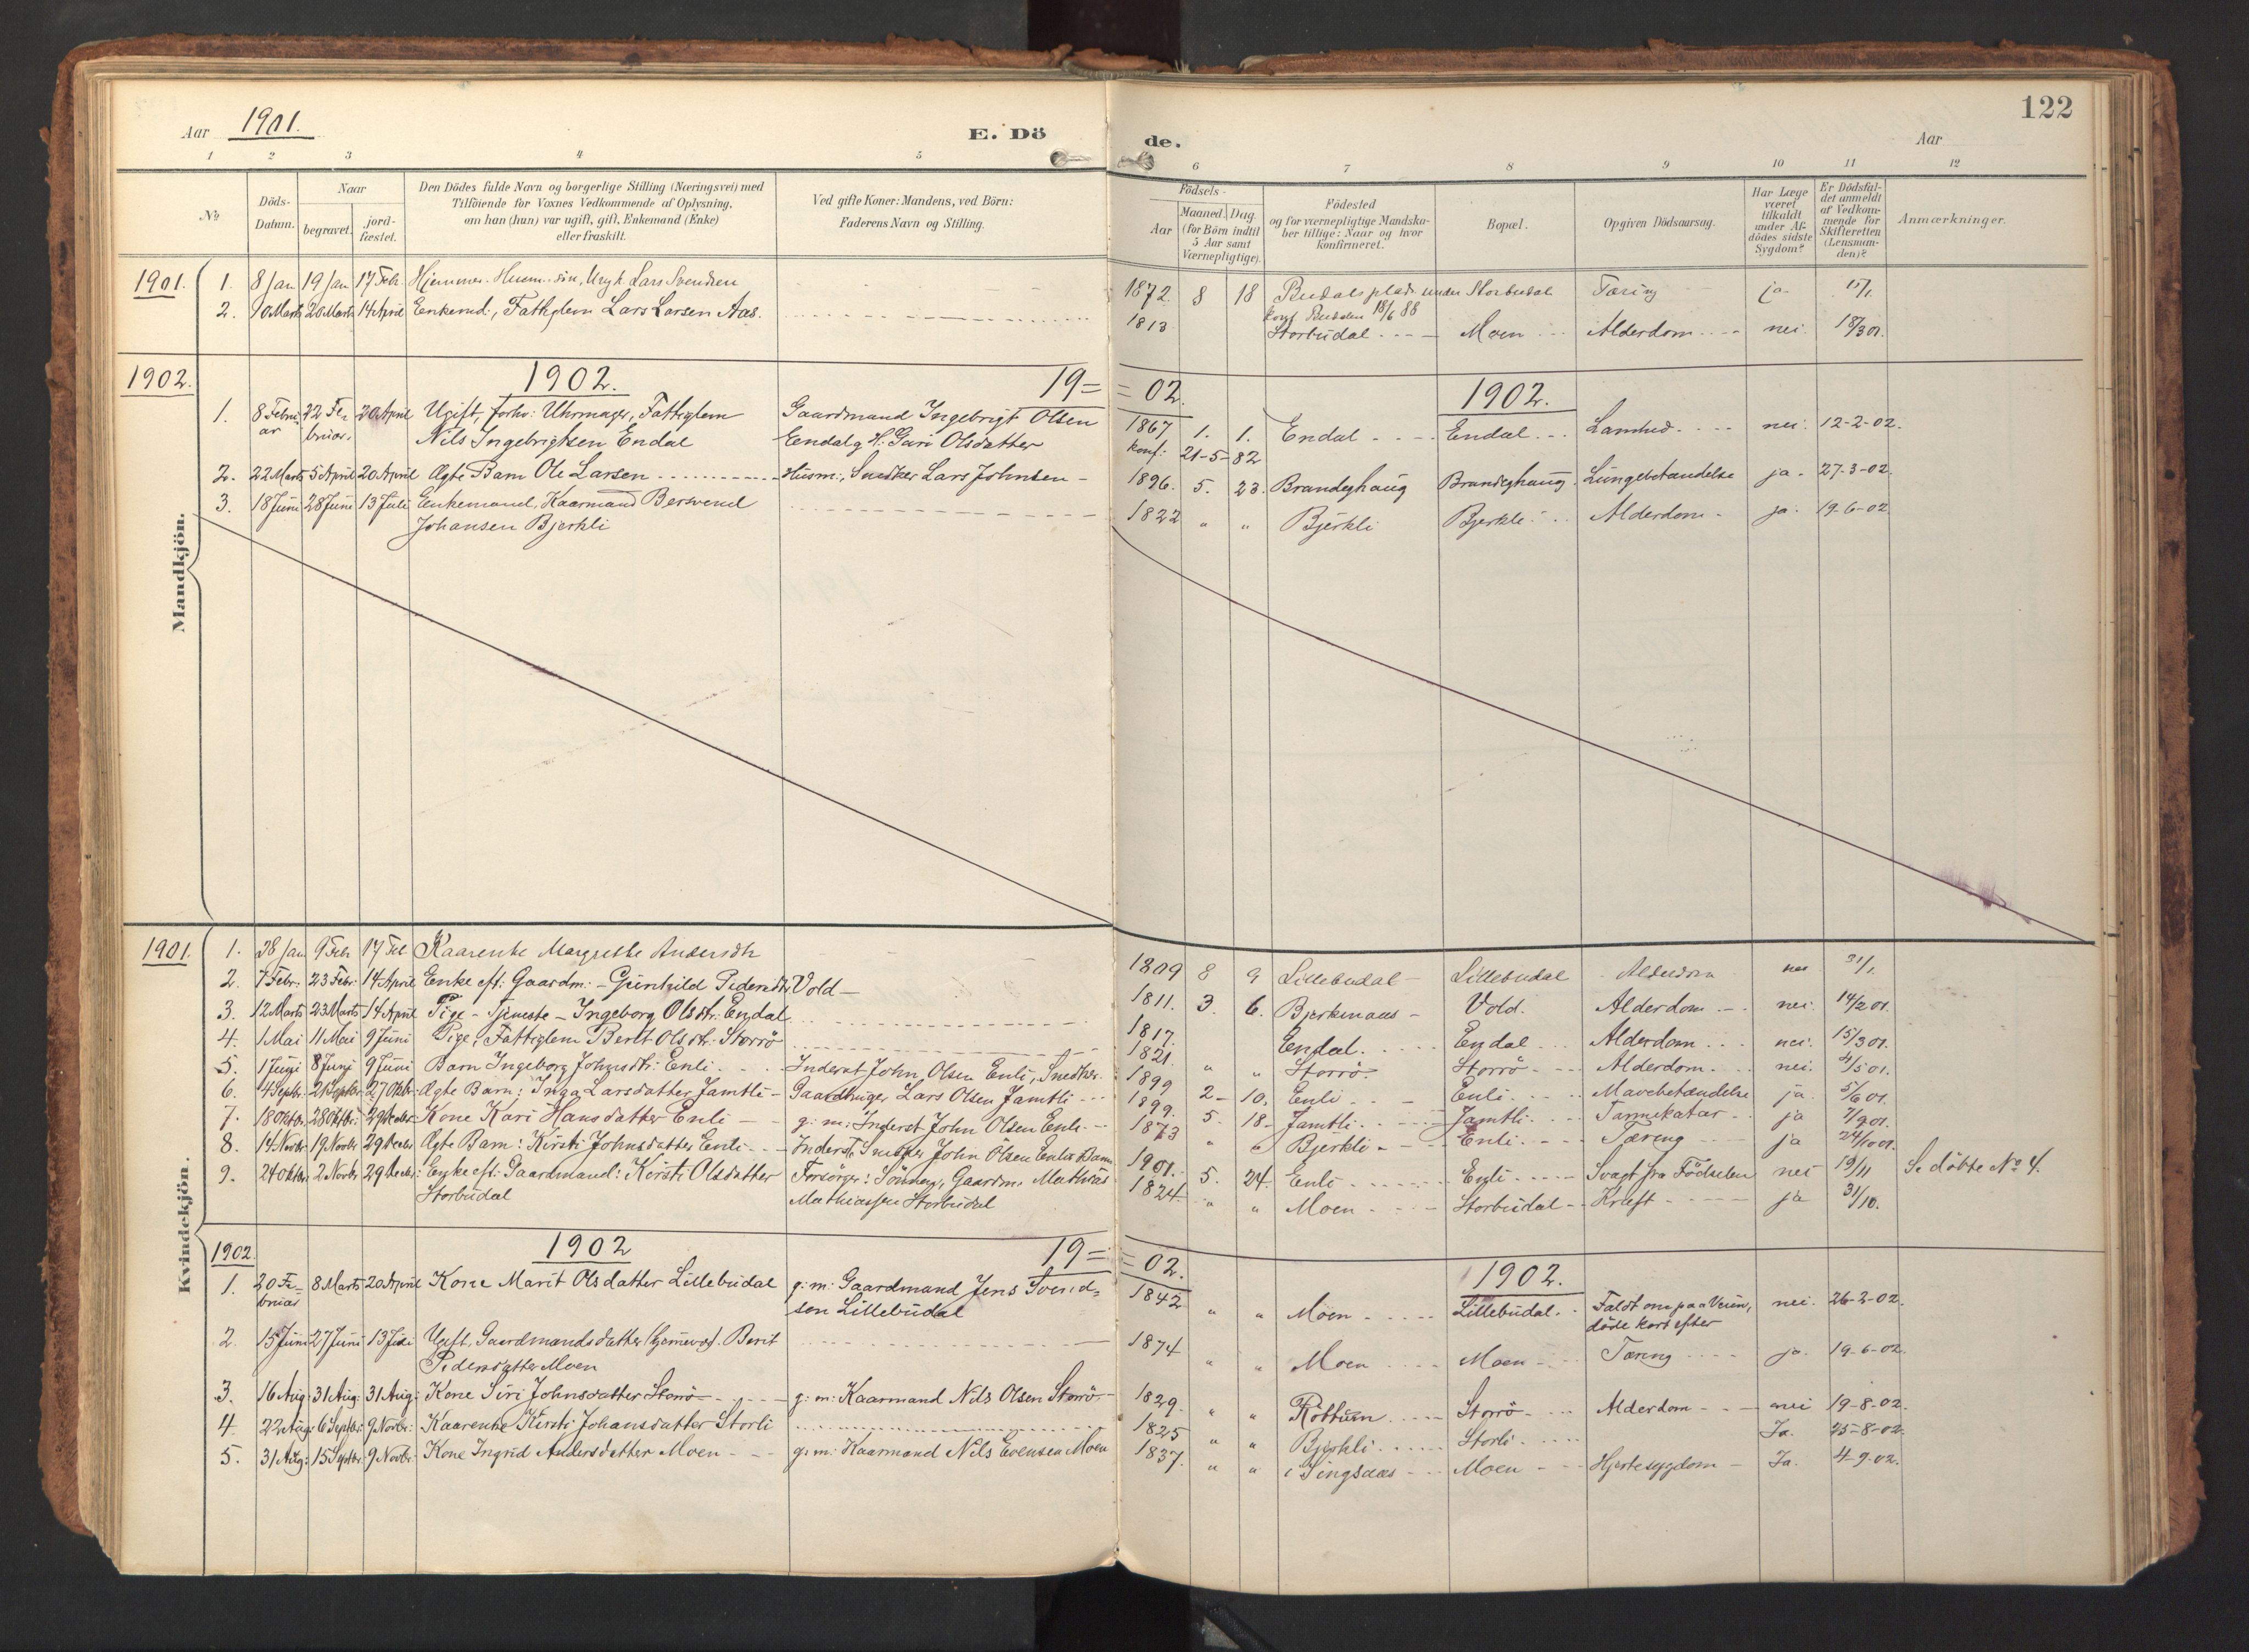 Aar 1901. E. Dö de. Aar 122
1 2 3 4 5 6 7 8 9 10 11 12
No
Döds-Datum.
Naar
begravet.
jord-fæstet.
Den Dödes fulde Navn og borgerlige Stilling (Næringsvei) med
Tilföiende for Voxnes Vedkommende af Oplysning,
om han (hun) var ugift, gift, Enkemand (Enke)
eller fraskilt.
Ved gifte Koner: Mandens, ved Börn:
Faderens Navn og Stilling.
Födsels-
Aar
Maaned. Dag.
(for Börn indtil
5 Aar samt
Værnepligtige).
Födested
og for værnepligtige Mandska-
ber tillige: Naar og hvor
konfirmeret.
Bopæl.
Opgiven Dödsaarsag.
Har Læge
været
tilkaldt
under Af-
dödes sidste
Sygdom?
Er Dödsfal-
det anmeldt
af Vedkom-
mende for
Skifteretten
(Lensman-
den)?
Anmærkninger.
Mandkjön.
1901. 1. 8 Jan 19 Jan 17 Febr. Hjemmev. Husm. sön, Ungk. Lars Svendsen 1872. 8 18 Budalsplads under Storbudal Tæring ja. 15/1
konf. Budalen 18/6 88
2. 10 Marts 20 Marts 14 April Enkemd., Fattiglem Lars Larsen Aas. 1813 Storbudal Moen Alderdom nei. 18/3 01.
1902. 1902. 19= =02. 1902.
1. 8 Februar 22 Februar. 20 April Ugift, forhv: Uhrmager, Fattiglem Gaardmand Ingebrigt Olsen 1867 1. 1. Endal Endal Lamhed nei. 12-2-02.
Nils Ingebrigtsen Endal Eendal g H: Guri Olsdatter konf: 21-5-82
2. 22 Marts 5 April 20 April Ægte Barn Ole Larsen Husm:, Snedker Lars Johnsen 1896. 5. 23. Brandeghaug Brandeghaug Lungebetændelse ja. 27-3-02.
3. 18 Juni 28 Juni 13 Juli Enkemand, Kaarmand Bersvend 1822 " " Bjerkli Bjerkli Alderdom ja. 19-6-02
Johansen Bjerkli
Kvindekjön.
1901. 1. 28 Jan 9 Febr 17 Feb Kaarenke Margrethe Andersdtr 1809 8 9 Lillebudal Lillebudal Alderdom nei 31/1
2. 7 Febr: 23 Febr: 14 April Enke eft: Gaardm:- Gunhild Pedersdtr Vold 1811. 3. 6. Bjerkmaas Vold. Alderdom nei. 14/2 01.
3. 12 Marts 23 Marts 14 April Pige - Tjeneste - Ingeborg Olsdtr. Endal 1817. Endal. Endal Alderdom nei. 15/3 01.
4. 1 Mai 11 Mai 9 Juni Pige, Fattiglem Berit Olsdtr. Storrö 1821. " " Storrö. Storrö Alderdom. nei. 4/5 01.
5. 1 Juni 8 Juni 9 Juni Barn Ingeborg Johnsdtr: Enli Inderst John Olsen Enli, Snedker. 1899 2 10. Enli Enli. Mavebetændelse ja. 5/6 01.
6. 4 Septbr. 21 Septbr 27 Oktbr: Ægte Barn: Inga Larsdatter Jamtli Gaardbruger Lars Olsen Jamtli 1899. 5. 18 Jamtli. Jamtli. Tarmekatar ja 7/9 01.
7. 18 Oktbr. 28 Oktbr: 29 Decbr: Kone Kari Hansdatter Enli g: m: Inderst John Olsen Enli. 1873 " " Bjerkli Enli. Tæring ja 24/10 01.
8. 14 Novbr 19 Novbr 29 Decbr Ægte Barn: Kirsti Johnsdatter Enli Inderst, Snedker John Olsen Enlis Barn 1901. 5. 24. Enli Enli Svagt fra Födselen nei 19/11 Se döbte No 4.
9. 24 Oktbr. 2 Novbr 29 Decbr: Enke eft: Gaardmand: Kirsti Olsdatter Forsörger: Sönnen, Gaardm. Mathias 1824. " " Moen Storbudal Kræft ja 31/10.
Storbudal Mathiassen Storbudal
1902. 1902 19= =02. 1902.
1. 20 Februar 8 Marts 20 April Kone Marit Olsdatter Lillebudal g: m: Gaardmand Jens Svend= 1842 " " Moen Lillebudal. Faldt om paa Veien, nei. 26-2-02.
sen Lillebudal döde kort efter
2. 15 Juni 27 Juni 13 Juli Ugift, Gaardmandsdatter (hjemmev:). Berit 1874 " " Moen Moen Tæring ja. 19-6-02.
Pedersdatter Moen
3. 16 Aug: 31 Aug: 31 Aug: Kone Siri Johnsdatter Storrö g: m: Kaarmand Nils Olsen Storrö. 1829. " " Rottum Storrö Alderdom nei 19-8-02.
4. 22 Aug: 6 Septbr: 9 Novbr: Kaarenke Kirsti Johansdatter Storli 1825 " " Bjerkli. Storli. Ja. 25-8-02.
5. 31 Aug: 15 Septbr: 9 Novbr: Kone Ingrid Andersdatter Moen g: m: Kaarmand Nils Evensen Moen 1837. " " i Singsaas Moen Hjertesygdom Ja. 4-9-02.